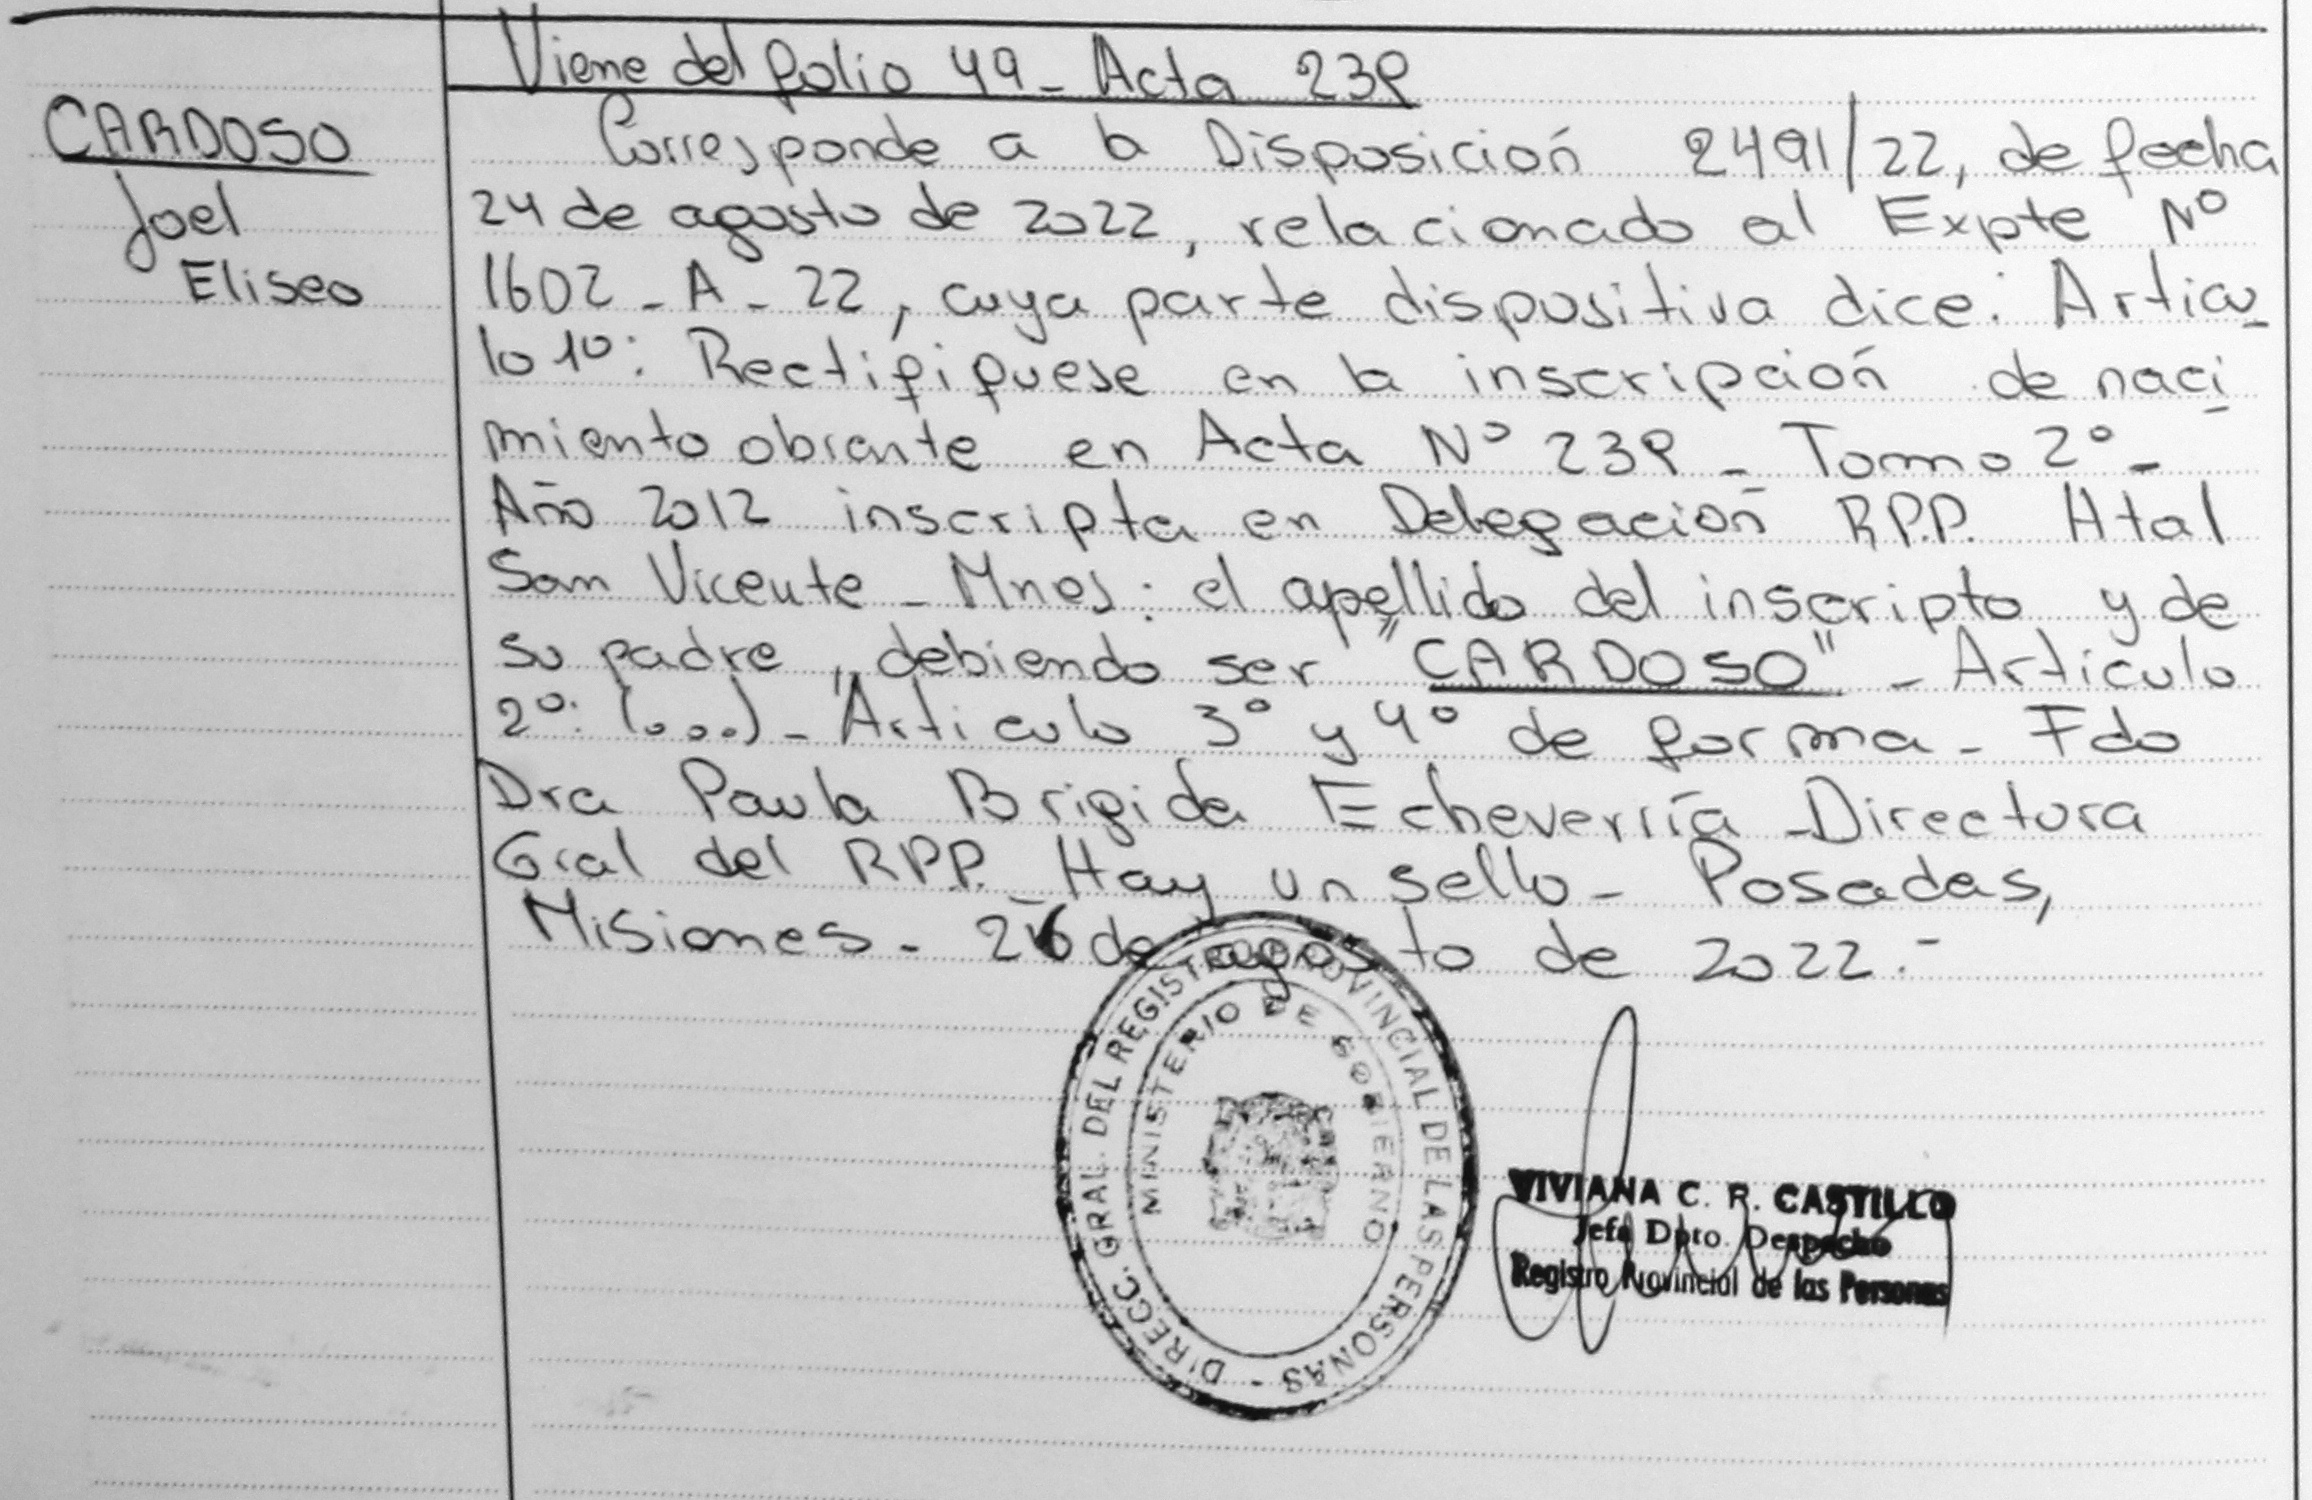 Viene del folio 49 - Acta 239
CARDOSO
Joel
Eliseo
Corresponde a la Disposición 2491/22, de fecha
24 de agosto de 2022, relacionado al Expte Nº
1602 - A - 22, cuya parte dispositiva dice: Articu-
lo 1º: Rectifífuese en la inscripción de naci-
miento obrante en Acta Nº 239 - Tomo 2º -
Año 2012 inscripta en Delegación RP.P. Htal
San Vicente - Mnes: el apellido del inscripto y de
su padre, debiendo ser "CARDOSO" - Articulo
2º: (...) - Articulo 3º y 4º de forma - Fdo
Dra Paula Brigida Echeverría - Directora
Gral del RPP. - Hay un sello - Posadas,
Misiones - 26 de agosto de 2022.-
DIRECC. GRAL. DEL REGISTRO PROVINCIAL DE LAS PERSONAS -
MINISTERIO DE GOBIERNO
VIVIANA C. R. CASTILLO
Jefa Dpto. Despacho
Registro Provincial de las Personas